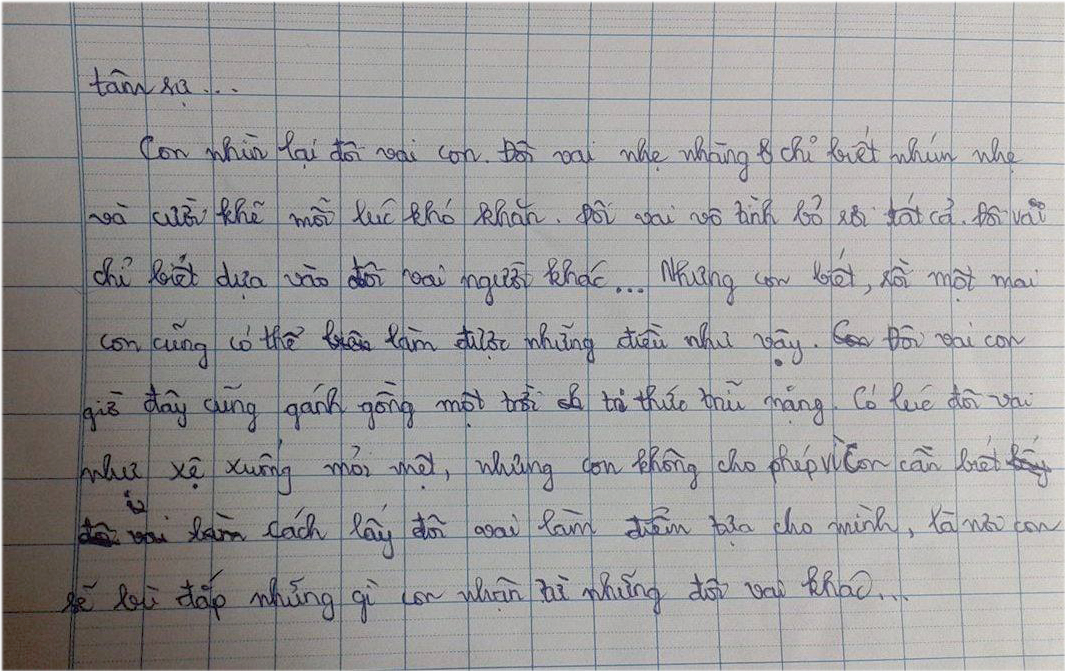 tâm sự...
Con nhìn lại đôi vai con. Đôi vai nhẹ nhàng chỉ biết nhún nhẹ
và cười khẽ mỗi lúc khó khăn. Đôi vai vô tình bỏ rơi tất cả. Đôi vai
chỉ biết dựa vào đôi vai người khác... Nhưng con biết, rồi một mai
con cũng có thể làm được những điều như vậy. Đôi vai con
giờ đây cũng gánh gồng một trời tri thức trĩu nặng. Có lúc đôi vai
như xệ xuống mỏi mệt, nhưng con không cho phép vì con cần biết
cách lấy đôi vai làm điểm tựa cho mình, là nơi con
sẽ bù đắp những gì con nhận từ những đôi vai khác...